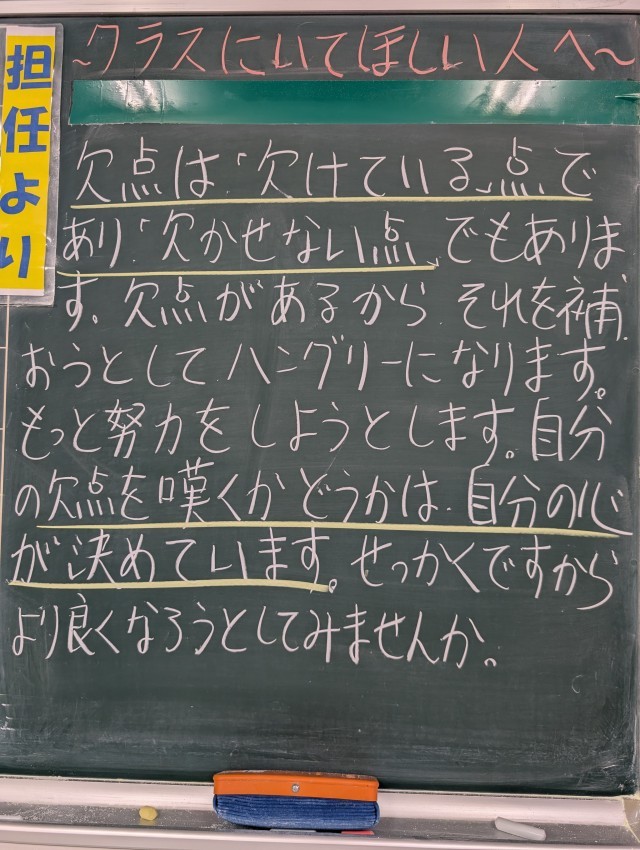 担任より
~クラスにいてほしい人へ~
欠点は「欠けている」点で
あり「欠かせない点」でもありま
す。欠点があるから、それを補
おうとしてハングリーになります。
もっと努力をしようとします。自分
の欠点を嘆くかどうかは、自分の心
が決めています。せっかくですから
より良くなろうとしてみませんか。